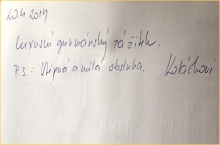 20.4.2019
Luxusní gurmánský zážitek.
P.S.: Vtipná a milá obsluha. Koláčkovi